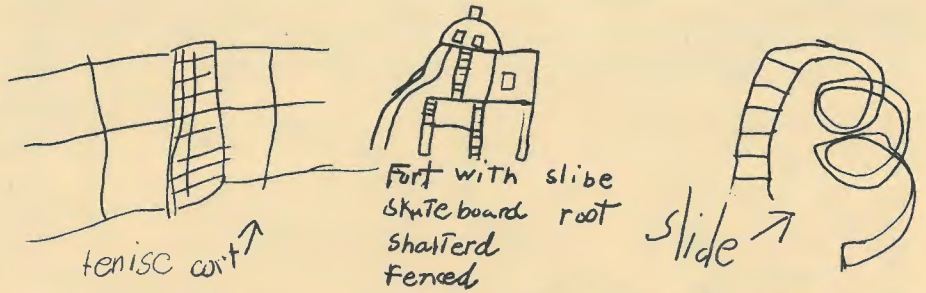 tenise cort
Fort with slibe
skateboard root
shalterd
fenced
slide